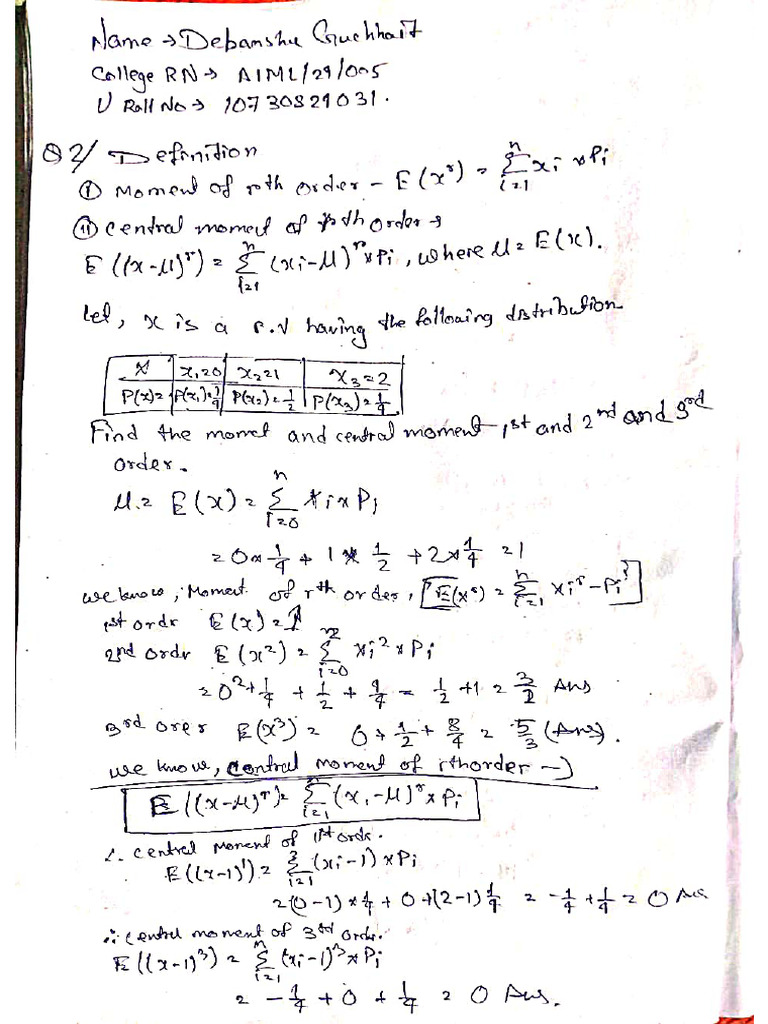 Name → Debanshu Guchhait
College RN → AIML/29/005
U Roll No → 10730829031.
Q2/ Definition
① Moment of rth order - E(x^r) = Σ_{i=1}^{n} xi × Pi
② Central moment of rth order →
E((x-μ)^r) = Σ_{i=1}^{n} (xi-μ)^r × Pi, where μ = E(x).
Let, x is a r.v having the following distribution
X | x1=0 | x2=1 | X3=2
P(x)= | P(x1)=1/4 | P(x2)=1/2 | P(x3)=1/4
Find the momet and central moment 1st and 2nd and 3rd
order.
μ = E(x) = Σ_{i=0}^{n} xi × Pi
= 0 × 1/4 + 1 × 1/2 + 2 × 1/4 = 1
we know, Moment of rth order, [E(x^r) = Σ_{i=1}^{n} xi^r - Pi]
1st ordr E(x) = 1
2nd ordr E(x²) = Σ_{i=0} xi² × Pi
= 0² + 1/4 + 1/2 + 4/4 = 1/2 + 1 = 3/2 Ans
3rd orer E(x³) = 0 + 1/2 + 8/4 = 5/3 (Ans).
we know, central moment of rth order →
E((x-μ)^r) = Σ_{i=1}^{n} (xi-μ)^r × Pi
∴ central moment of 1st ordr.
E((x-1)^1) = Σ_{i=1}^{3} (xi-1) × Pi
= (0-1) × 1/4 + 0 + (2-1) 1/4 = -1/4 + 1/4 = 0 Ans
∴ central moment of 3rd ordr.
E((x-1)³) = Σ_{i=1}^{n} (xi-1)³ × Pi
= -1/4 + 0 + 1/4 = 0 Ans.